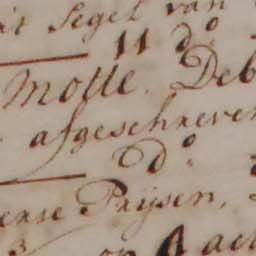 Segel van
11 d°
Motte. Deb
afgeschreven
d°
Prijsen,
op